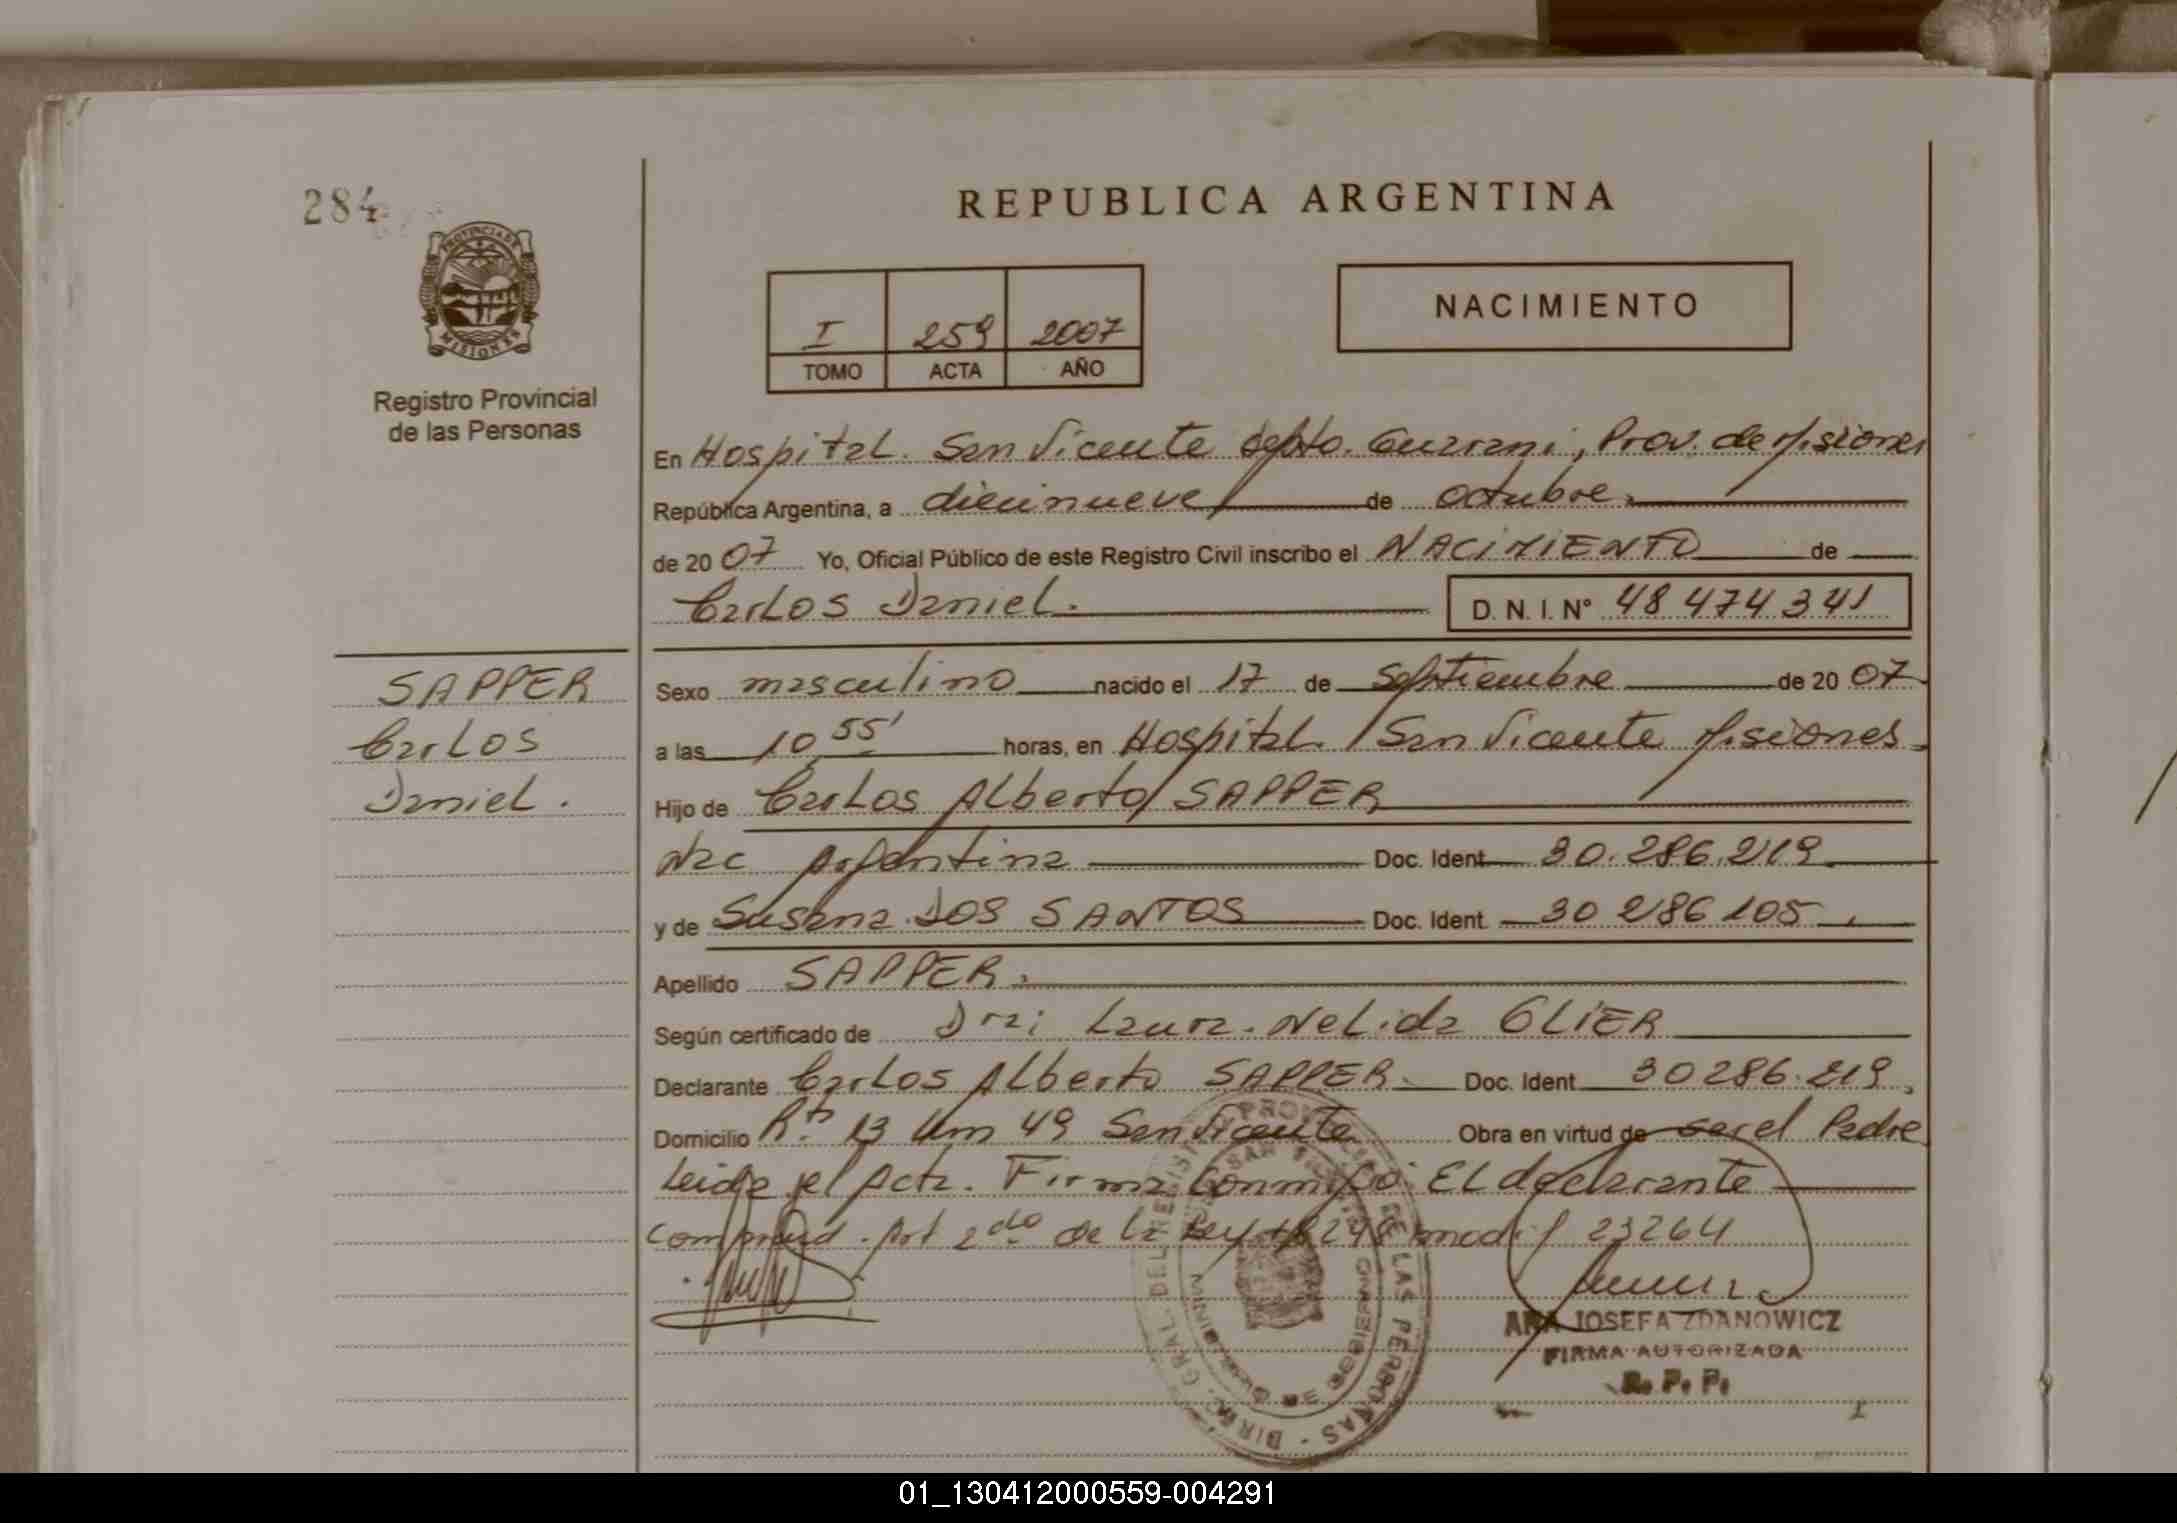 284
PROVINCIA DE
MISIONES
Registro Provincial
de las Personas
REPUBLICA ARGENTINA
I 259 2007
TOMO ACTA AÑO
NACIMIENTO
En Hospital. San Vicente depto. Guarani, Prov. de Misiones
República Argentina, a diecinueve de octubre.
de 2007 Yo, Oficial Público de este Registro Civil inscribo el NACIMIENTO de
Carlos Daniel. D. N. I. Nº 48 474 341
SAPPER
Carlos
Daniel.
Sexo masculino nacido el 17 de Septiembre de 2007
a las 10 55' horas, en Hospital. San Vicente Misiones
Hijo de Carlos Alberto SAPPER
Nac Argentina Doc. Ident. 30.286.219
y de Susana DOS SANTOS Doc. Ident. 30 286 105
Apellido SAPPER.
Según certificado de Dra; Laura. Nelida GLIER
Declarante Carlos Alberto SAPPER Doc. Ident. 30286.219
Domicilio Rta 13 km 49 San Vicente Obra en virtud de ser el Padre
Leida el Acta. Firma Conmigo: El declarante
Art 2do de la Ley 18248 modif 23264
ANA JOSEFA ZDANOWICZ
FIRMA AUTORIZADA
R. P. P.
DE LAS PERSONAS
01_130412000559-004291